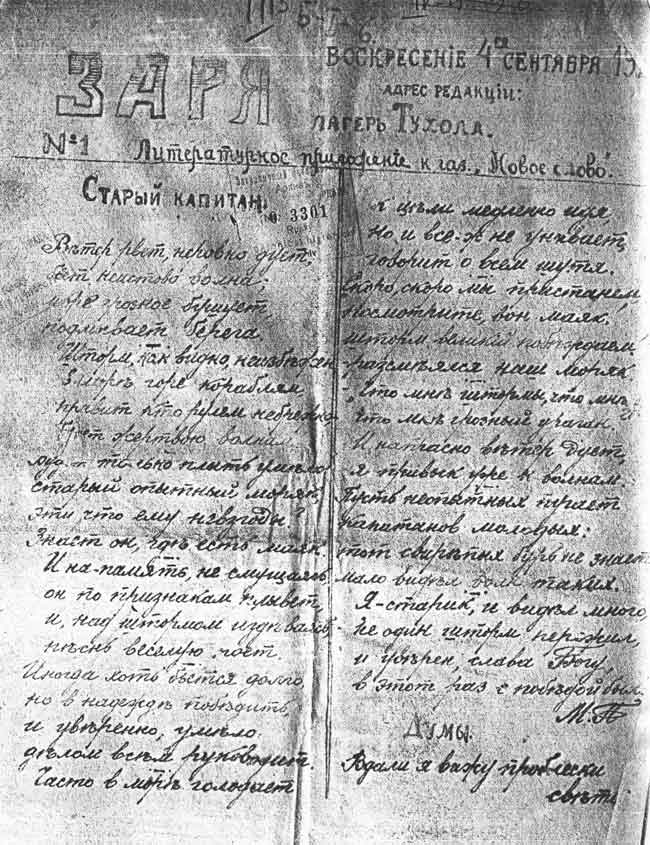 ЗАРЯ
ВОСКРЕСЕНІЕ 4го СЕНТЯБРЯ
АДРЕС РЕДАКЦІИ:
ЛАГЕРЬ ТУХОЛА.
№1 Литературное приложеніе к газ. „Новое слово“.
СТАРЫЙ КАПИТАН.
3301
Вѣтер рвет, неровно дует,
неистово волна;
море грозное бушует,
подмывает берега.
Шторм, как видно, неизбѣжен
В морѣ горе кораблям
правит кто рулем небрежно
жертвою волнам.
только плыть умѣло
старый опытный моряк,
эти что ему невзгоды?
Знает он, гдѣ есть маяк.
И на-память, не смущаясь,
он по признакам плывет,
и, над штормом издѣваясь,
пѣснь веселую поет.
Иногда хоть бьется долго,
но в надеждѣ побѣдить,
и увѣренно, умѣло
дѣлом всѣм руководит.
Часто в морѣ голодает
к цѣли медленно идя
но и все-ж не унывает,
говорит о всем шутя.
Скоро, скоро мы пристанем,
Посмотрите, вон маяк.
шторм великій побѣждаем
разсмѣялся наш моряк
„Что мнѣ штормы, что мнѣ
что мнѣ грозный ураган.
И напрасно вѣтер дует,
я привык уже к волнам.
Пусть неопытных пугает
капитанов молодых:
тот свирѣпых бурь не знает
мало видѣл волн таких.
Я-старик, и видѣл много,
не один шторм пережил,
и увѣрен, слава Богу,
в этот раз с побѣдой был.
М.П
ДУМЫ.
Вдали я вижу проблески
свѣта